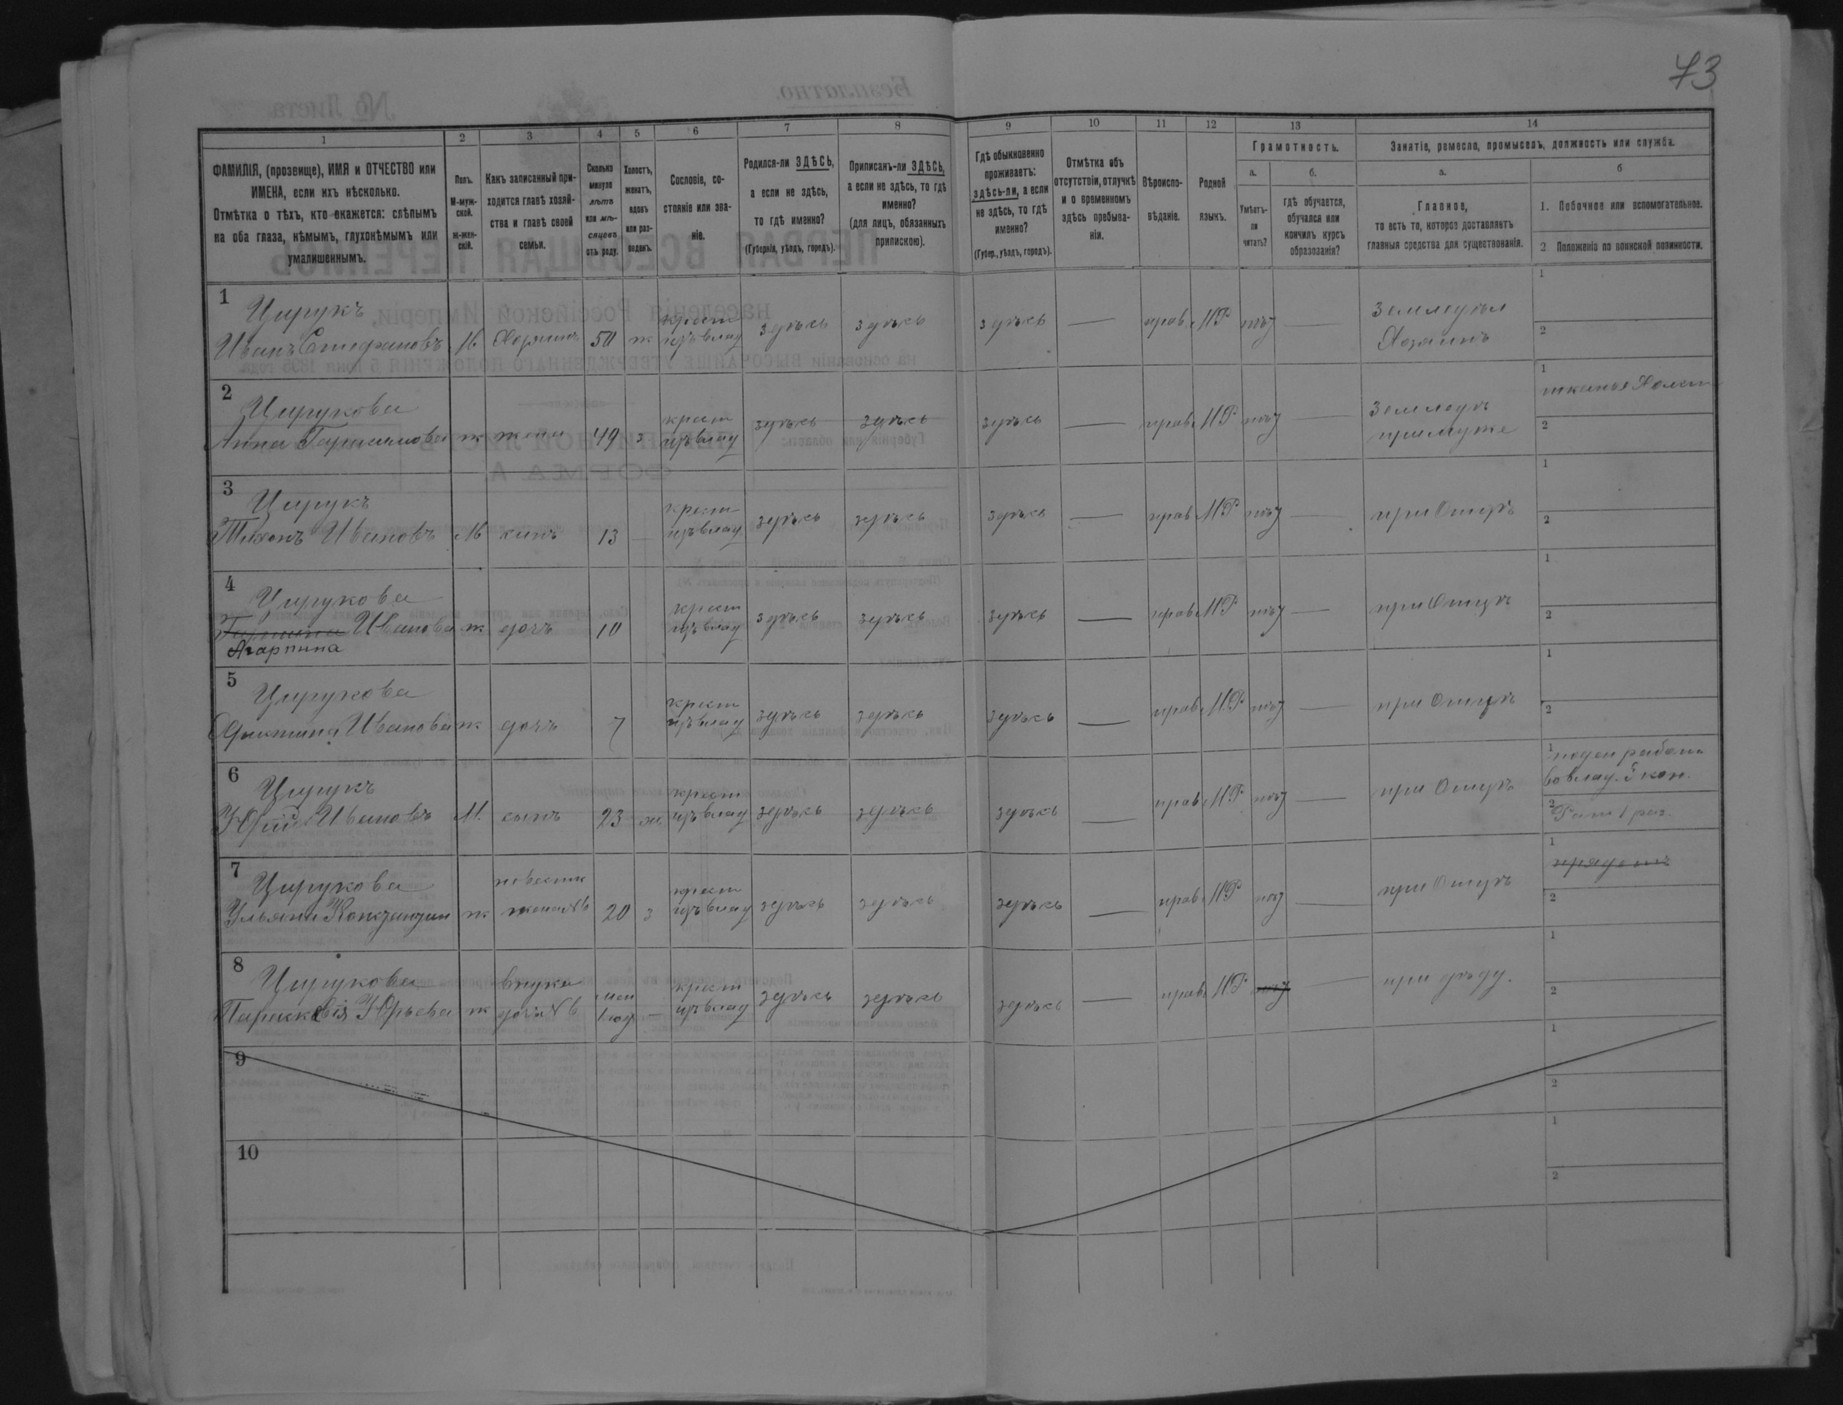 73
1
2
3
4
5
6
7
8
9
10
11
12
13
14
ФАМИЛІЯ, (прозвище), ИМЯ и ОТЧЕСТВО или
ИМЕНА, если ихъ нѣсколько.
Отмѣтка о тѣхъ, кто окажется: слѣпымъ
на оба глаза, нѣмымъ, глухонѣмымъ или
умалишеннымъ.
Полъ.
М-муж-
ской.
Ж-жен-
скій.
Какъ записанный при-
ходится главѣ хозяй-
ства и главѣ своей
семьи.
Сколько
минуло
лѣтъ
или мѣ-
сяцевъ
отъ роду.
Холостъ,
женатъ,
вдовъ
или раз-
веденъ.
Сословіе, со-
стояніе или зва-
ніе.
Родился-ли ЗДѢСЬ,
а если не здѣсь,
то гдѣ именно?
(Губернія, уѣздъ, городъ).
Приписанъ-ли ЗДѢСЬ,
а если не здѣсь, то гдѣ
именно?
(для лицъ, обязанныхъ
припискою).
Гдѣ обыкновенно
проживаетъ:
здѣсь-ли, а если
не здѣсь, то гдѣ
именно?
(Губер., уѣздъ, городъ).
Отмѣтка объ
отсутствіи, отлучкѣ
и о временномъ
здѣсь пребыва-
ніи.
Вѣроиспо-
вѣданіе.
Родной
языкъ.
Грамотность.
а.
Умѣетъ-
ли
читать?
б.
гдѣ обучается,
обучался или
кончилъ курсъ
образованія?
Занятіе, ремесло, промыселъ, должность или служба.
а.
Главное,
то есть то, которое доставляетъ
главныя средства для существованія.
б
1. Побочное или вспомогательное.
2. Положеніе по воинской повинности.
1
Цирукъ
Иванъ Стефановъ М. Хозяинъ 50 ж крест изъ влад здѣсь здѣсь здѣсь — прав. МР нѣт — Земледѣл Хозяинъ
2
Цирукова
Анна ж жена 49 з крест изъ влад здѣсь здѣсь здѣсь — прав. МР нѣт — Земледѣ при мужѣ
3
Цирукъ
Тихонъ Ивановъ М сынъ 13 — крест изъ влад здѣсь здѣсь здѣсь — прав. МР нѣт — при Отцѣ
4
Цирукова
Ивановa ж дочь 10 крест изъ влад здѣсь здѣсь здѣсь — прав. МР нѣт — при Отцѣ
Агарпина
5
Цирукова
Ивановa ж дочь 7 крест изъ влад здѣсь здѣсь здѣсь — прав. МР нѣт — при Отцѣ
6
Цирукъ
Юрій Ивановъ М. сынъ 23 ж. крест изъ влад здѣсь здѣсь здѣсь — прав. МР нѣт — при Отцѣ
7
Цирукова
Ульяна ж невестка жена №6 20 з крест изъ влад здѣсь здѣсь здѣсь — прав. МР нѣт — при Отцѣ
8
Цирукова
Парасковія Юрьева ж внучка дочь №6 — крест изъ влад здѣсь здѣсь здѣсь — прав. МР нѣт — при дѣду.
9
10